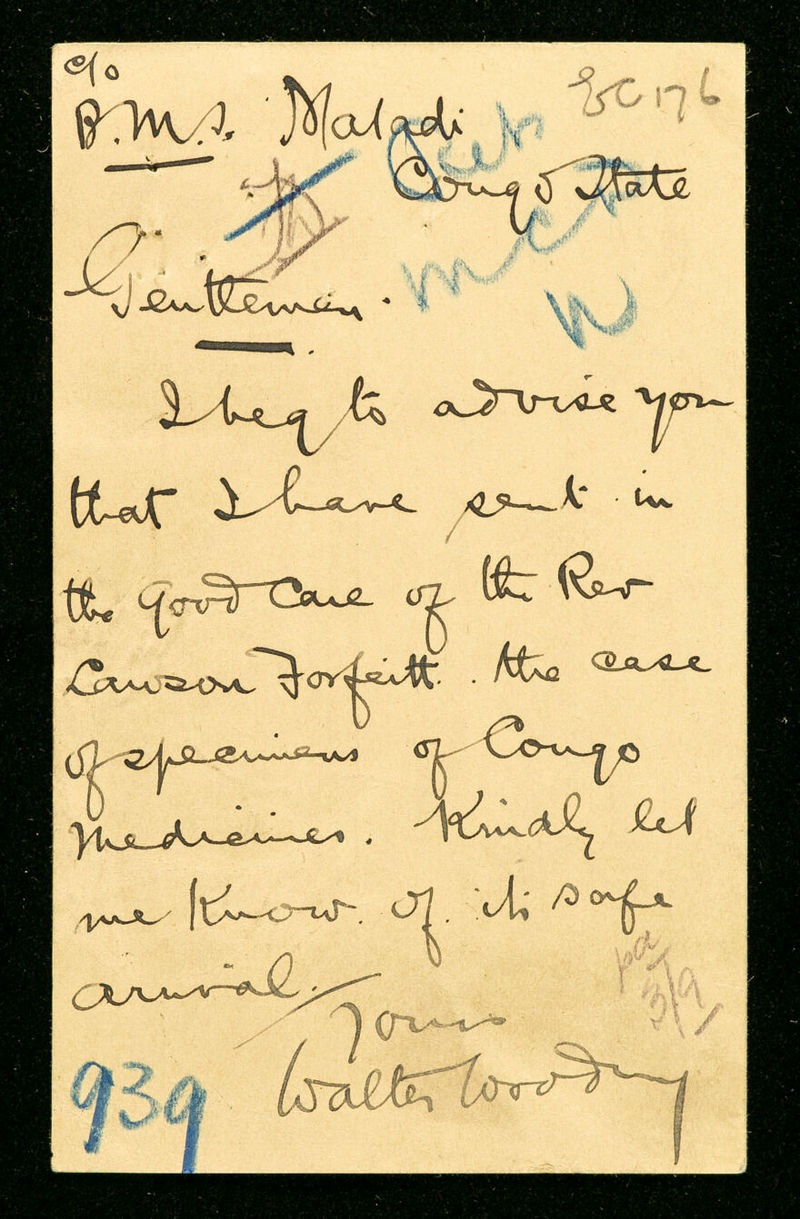 c/o
EC 176
B.M.S. Matadi
Congo State
Gentleman.
I beg to advise you
that I have sent in
the good care of the Rev
Lawson Forfeitt. the case
of specimens of Congo
Medicines. Kindly let
me Know of its safe
arrival.
pa
3/9
Yours
Walter
939